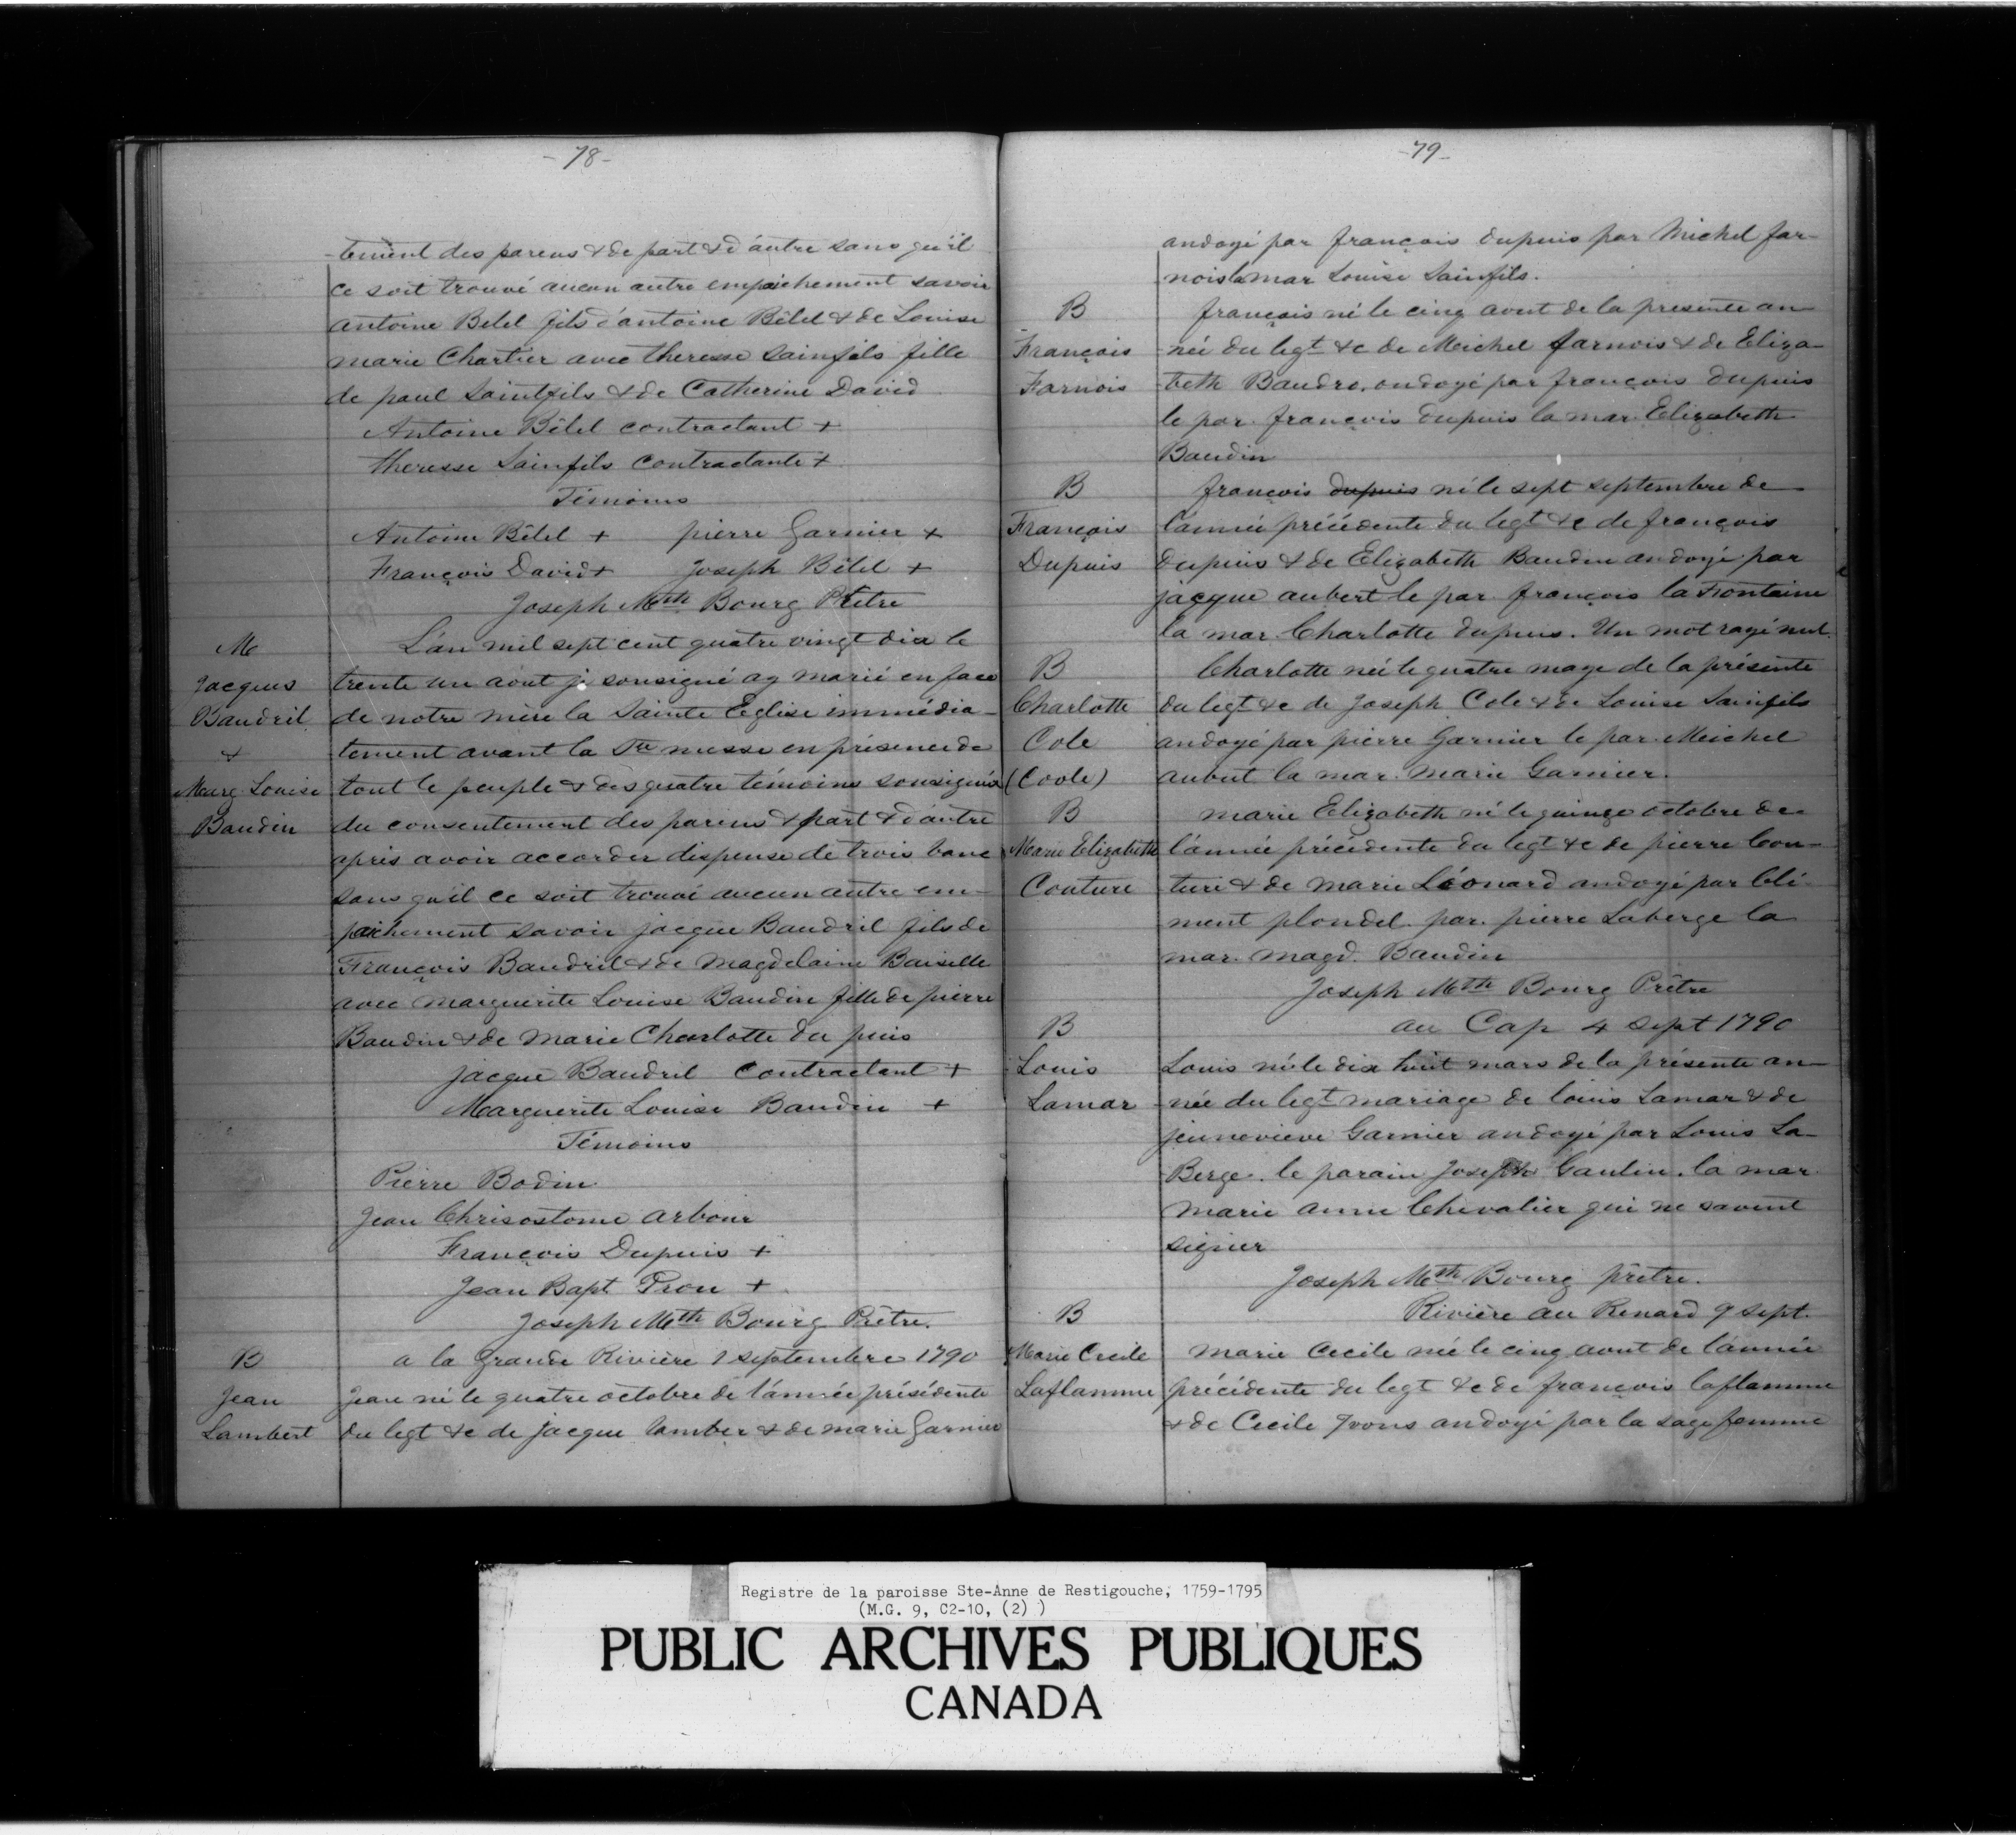 -78-
-tement des parens & de part & d'autre sans qu'il
ce soit trouvé aucun autre empaichement savoir
antoine Bêlel fils d'antoine Bêlel & de Louise
marie Chartier avec theresse Sainfils fille
de paul Saintfils & de Catherine David
Antoine Bêlel contractant +
theresse Sainfils contractante +
Témoins
Antoine Bêlel + pierre Garnier +
François David + Joseph Bêlel +
Joseph Mth Bourg Prêtre
M
Jacques
Baudril
&
Marg. Louise
Baudin
L'an mil sept cent quatre vingt dix le
trente un août je sousigné ay marié en face
de notre mère la Sainte Eglise immédia-
tement avant la Ste messe en présence de
tout le peuple & des quatre témoins sousignés
du consentement des parens & part & d'autre
après avoir accorder dispense de trois banc
sans qu'il ce soit trouvé aucun autre em-
paichement savoir jacque Baudril fils de
François Baudril & de Magdelaine Baiselle
avec marguerite Louise Baudin fille de pierre
Baudin & de Marie Charlotte du puis
jacque Baudril contractant +
Marguerite Louise Baudin +
Témoins
Pierre Bodin
Jean Chrisostome arbour
François Dupuis +
Jean Bapt Prou +
Joseph Mth Bourg Prêtre.
B
Jean
Lambert
a la Grande Rivière 1 septembre 1790
Jean né le quatre octobre de l'année présédente
du legt &c de jacque lamber & de marie Garnier
-79-
andoyé par françois dupuis par Michel far-
nois la mar Louise Sainfils.
B
François
Farnois
françois né le cinq aout de la presente an
née du legt &c de Meichel farnois & de Eliza-
beth Baudro. ondoyé par françois dupuis
le par. françois dupuis la mar. Elizabeth
Baudin
B
François
Dupuis
françois dupuis né le sept septembre de
l'année précédente du legt &c de françois
dupuis & de Elizabeth Baudin andoyé par
jacque aubert le par. françois la Frontaine
la mar. Charlotte dupuis. Un mot rayé nul.
B
Charlotte
Cole
(Coole)
Charlotte née le quatre maye de la présente
du legt &c de Joseph Cole & de Louise Sainfils
andoyé par pierre Garnier le par. Meichel
aubut la mar. Marie Garnier.
B
Marie Elizabeth
Couture
marie Elizabeth né le quinze octobre de
l'année précédente du legt &c de pierre Cou-
ture & de marie Léonard andoyé par Clé-
ment plondel. par. pierre Laberge la
mar. magd. Baudin
Joseph Mth Bourg Prêtre
B
Louis
Lamar
au Cap 4 sept 1790
Louis né le dix huit mars de la présente an-
née du legt mariage de loüis Lamar & de
jenneviève Garnier andoyé par Louis La-
Berge. le parain Joseph Cantin. la mar.
Marie anne Chevalier qui ne savent
signer
Joseph Mth Bourg prêtre.
B
Marie Cecile
Laflamme
Rivière au Renard 9 sept.
Marie Cecile née le cinq aout de l'année
précédente du legt &c de françois laflamme
& de Cecile Yvons andoyé par la sage femme
Registre de la paroisse Ste-Anne de Restigouche, 1759-1795
(M.G. 9, C2-10, (2) )
PUBLIC ARCHIVES PUBLIQUES
CANADA